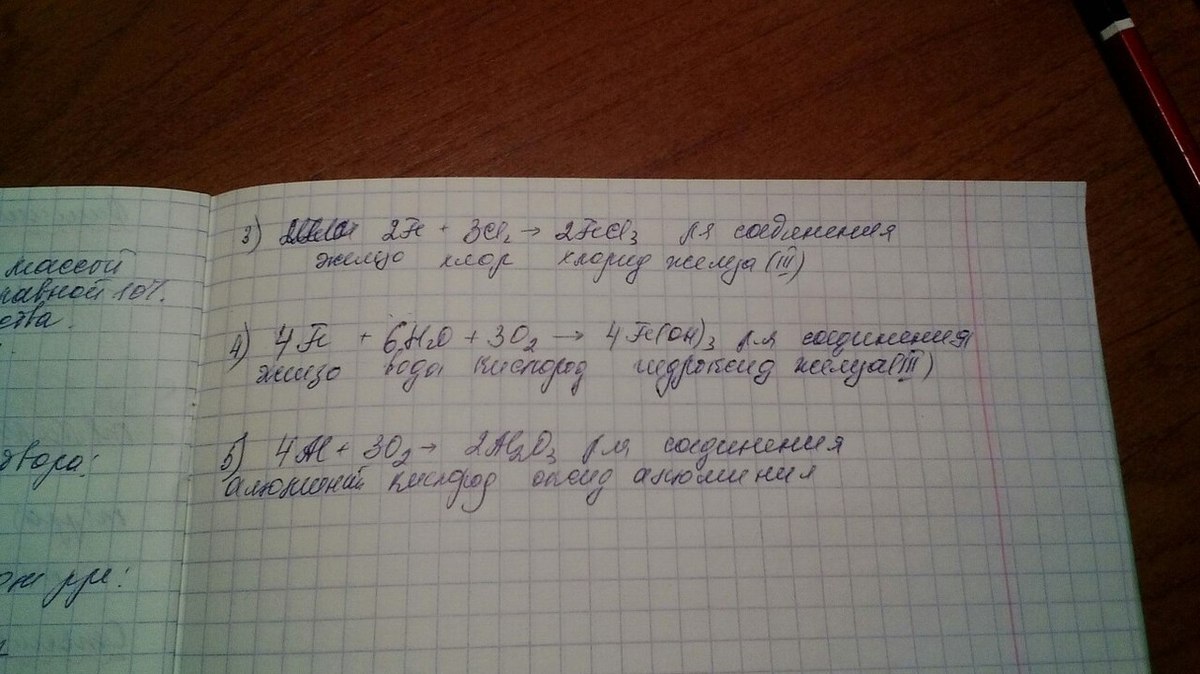 массой
равной 10%.
ства.
твора:
3) 2Fe + 3Cl₂ → 2FeCl₃ р-я соединения
железо хлор хлорид железа (III)
4) 4Fe + 6H₂O + 3O₂ → 4Fe(OH)₃ р-я соединения
железо вода кислород гидроксид железа (III)
5) 4Al + 3O₂ → 2Al₂O₃ р-я соединения
алюминий кислород оксид алюминия